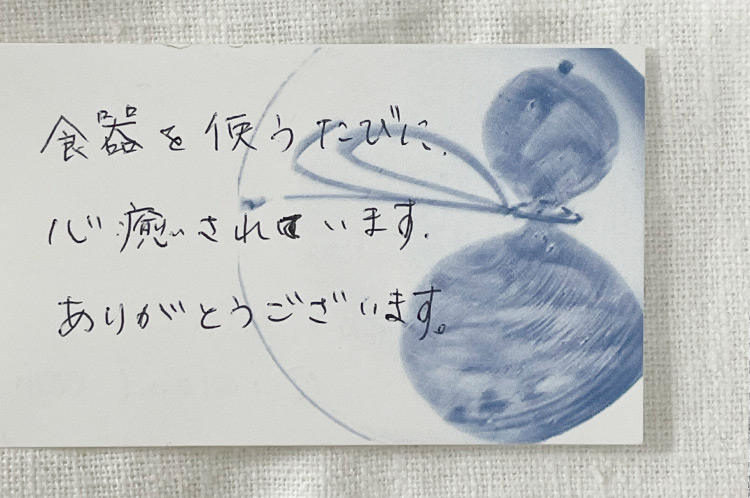 食器を使うたびに、
心癒されています。
ありがとうございます。